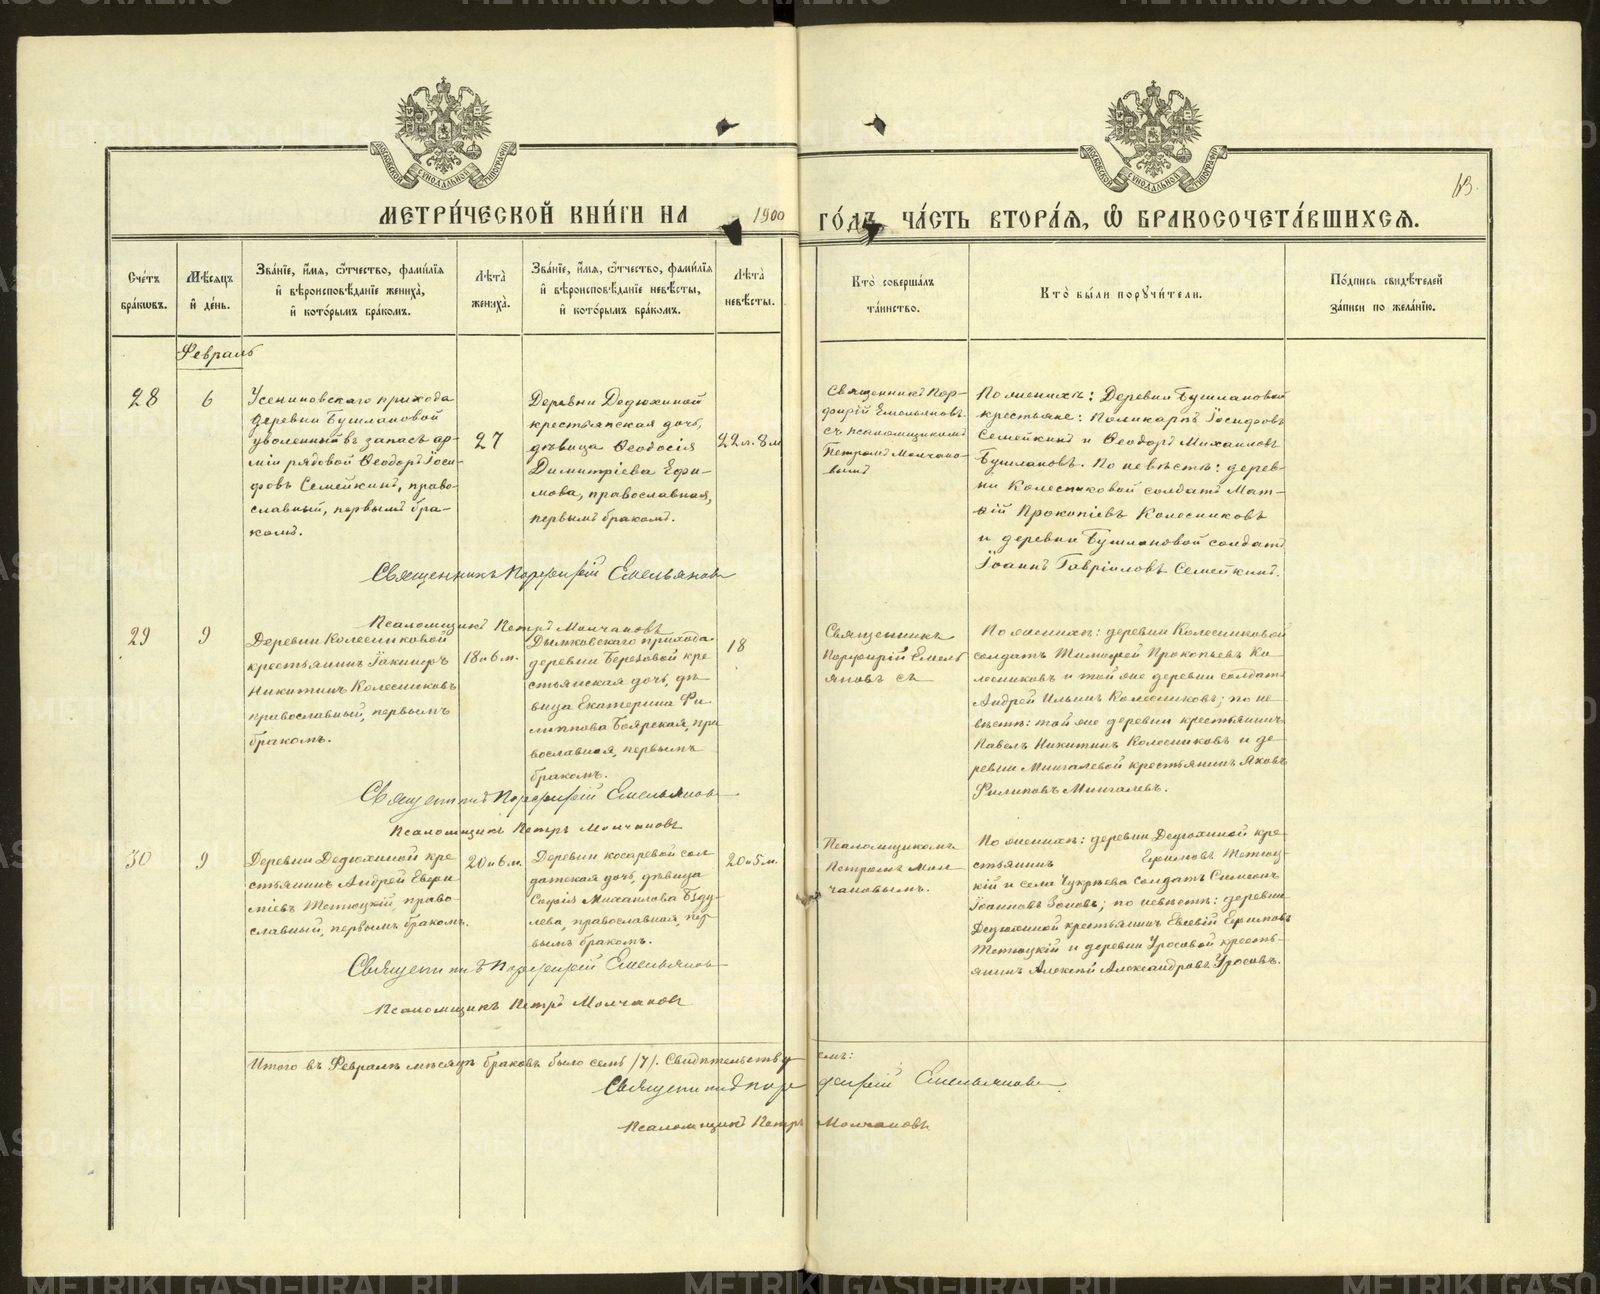 МЕТРИ́ЧЕСКОЙ КНИ́ГИ НА 1900 ГО́ДЪ, ЧА́СТЬ ВТОРА́Ѧ, Ѡ БРАКОСОЧЕТА́ВШИХСѦ.
63.
Сче́тъ
бра́ковъ.
Мѣ́сѧцъ
и҆ де́нь.
Зва́нїе, и҆́мѧ, ѻ҆́тчество, фами́лїѧ
и҆ вѣроисповѣ́данїе жениха̀,
и҆ кото́рымъ бра́комъ.
Лѣ́та
жениха̀.
Зва́нїе, и҆́мѧ, ѻ҆́тчество, фами́лїѧ
и҆ вѣроисповѣ́данїе невѣ́сты,
и҆ кото́рымъ бра́комъ.
Лѣ́та
невѣ́сты.
Кто̀ соверша́лъ
та́инство.
Кто̀ бы́ли порꙋчи́тели.
По́дпись свидѣ́телей
за́писи по жела́нїю.
Февраль
28
6
Усениновскаго прихода
деревни Бушлановой
уволенный въ запасъ ар-
міи рядовой Ѳеодоръ Іоси-
фовъ Семейкинъ, право-
славный, первымъ бра-
комъ.
27
Деревни Дедюхиной
крестьянская дочь,
дѣвица Ѳеодосія
Димитріева Ефи-
мова, православная,
первымъ бракомъ.
22 л. 8 м
Священникъ Пор-
фирій Емельяновъ
съ псаломщикомъ
Петромъ Молчано-
вымъ
По женихѣ: Деревни Бушлановой
крестьяне: Поликарпъ Іосифовъ
Семейкинъ и Ѳеодоръ Михаиловъ
Бушлановъ. По невѣстѣ: дерев-
ни Колесниковой солдатъ Мат-
ѳій Прокопіевъ Колесниковъ
и деревни Бушлановой солдатъ
Іоаннъ Гавріиловъ Семейкинъ.
Священникъ Порфирій Емельяновъ
Псаломщикъ Петръ Молчановъ
29
9
Деревни Колесниковой
крестьянинъ Іакинфъ
Никитинъ Колесниковъ
православный, первымъ
бракомъ.
18 и 6 м.
Дымковскаго прихода
деревни Березовой кре
стьянская дочь, дѣ
вица Екатерина Фи
липпова Боярская, пра
вославная, первымъ
бракомъ.
18
Священникъ
Порфирій Емель
яновъ съ
По женихѣ: деревни Колесниковой
солдатъ Тимофей Прокопьевъ Ко
лесниковъ и той же деревни солдатъ
Андрей Ильинъ Колесниковъ; по не
вѣстѣ: той же деревни крестьянинъ
Павелъ Никитинъ Колесниковъ и де
ревни Мингалевой крестьянинъ Яковъ
Филиповъ Мингалевъ.
Священникъ Порфирій Емельяновъ
Псаломщикъ Петръ Молчановъ
30
9
Деревни Дедюхиной кре
стьянинъ Андрей Евфи
міевъ Тетюцкій, право-
славный, первымъ бракомъ.
20 и 6 м.
Деревни Косаревой сол
датская дочь, дѣвица
Софія Михаилова Бду
лева, православная, пер
вымъ бракомъ.
20 и 5 м.
Псаломщикомъ
Петромъ Мол
чановымъ.
По женихѣ: деревни Дедюхиной кре
стьянинъ Ефимовъ Тетюц
кій и села Чукрѣева солдатъ Симеонъ
Іоанновъ Зоновъ; по невѣстѣ: деревни
Дедюхиной крестьянинъ Евсевій Ефимовъ
Тетюцкій и деревни Уросовой кресть-
янинъ Алексѣй Александровъ Уросовъ.
Священникъ Порфирій Емельяновъ
Псаломщикъ Петръ Молчановъ
Итого въ Февралѣ мѣсяцѣ браковъ было семь /7/. Свидѣтельствуемъ:
Священникъ Порфирій Емельяновъ
Псаломщикъ Петръ Молчановъ